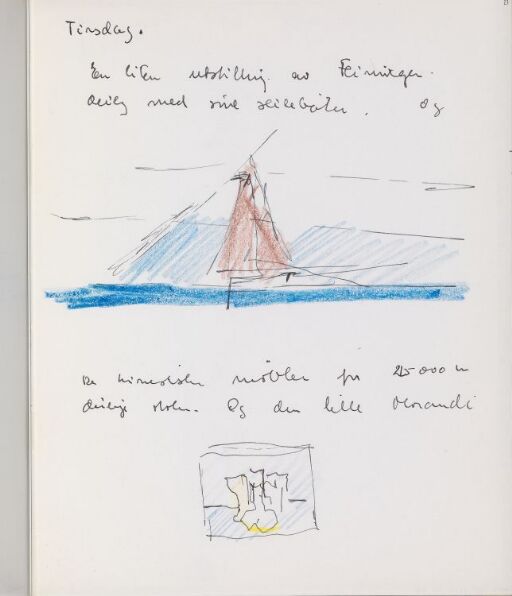 Tirsdag.
En liten utstilling av Feininger.
deilig med sine seilebåter. Og
De kinesiske møbler for 25 000 kr
deilige stoler. Og den lille Morandi